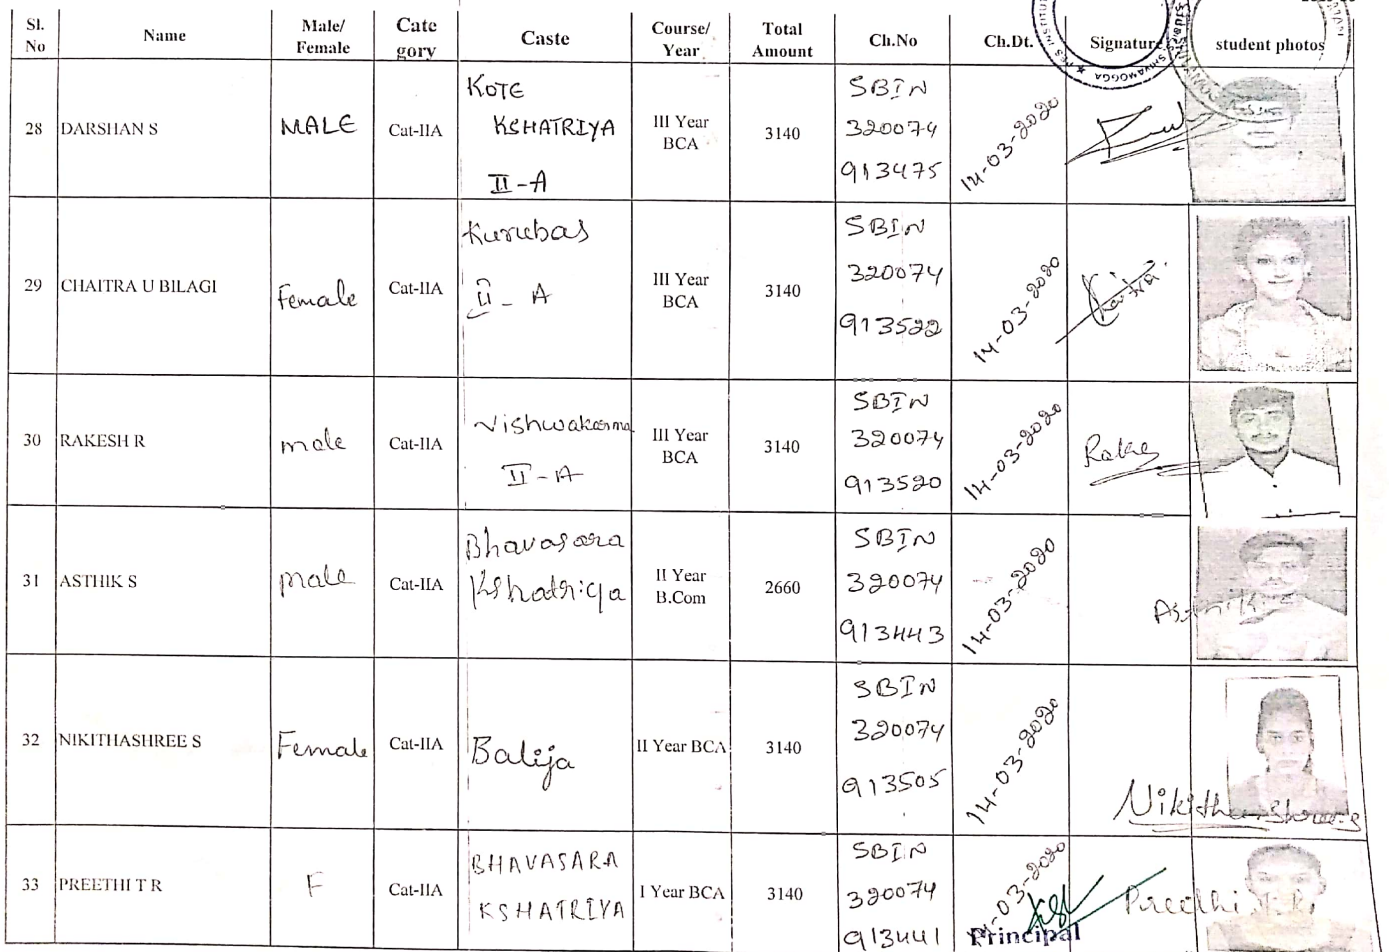 Sl. No Name Male/ Female Cate gory Caste Course/ Year Total Amount Ch.No Ch.Dt. Signature student photos
SHIVAMOGGA
28 DARSHAN S MALE Cat-IIA KOTE KSHATRIYA II-A III Year BCA 3140 SBIN 320074 913475 14-03-2020
29 CHAITRA U BILAGI Female Cat-IIA Kurubas II - A III Year BCA 3140 SBIN 320074 913522 14-03-2020
30 RAKESH R male Cat-IIA Vishwakarma II-A III Year BCA 3140 SBIN 320074 913520 14-03-2020
31 ASTHIK S male Cat-IIA Bhavasara Kshatriya II Year B.Com 2660 SBIN 320074 913443 14-03-2020
32 NIKITHASHREE S Female Cat-IIA Balija II Year BCA 3140 SBIN 320074 913505 14-03-2020 Nikithashree
33 PREETHI T R F Cat-IIA BHAVASARA KSHATRIYA I Year BCA 3140 SBIN 320074 913441 14-03-2020 Preethi T.R.
Principal